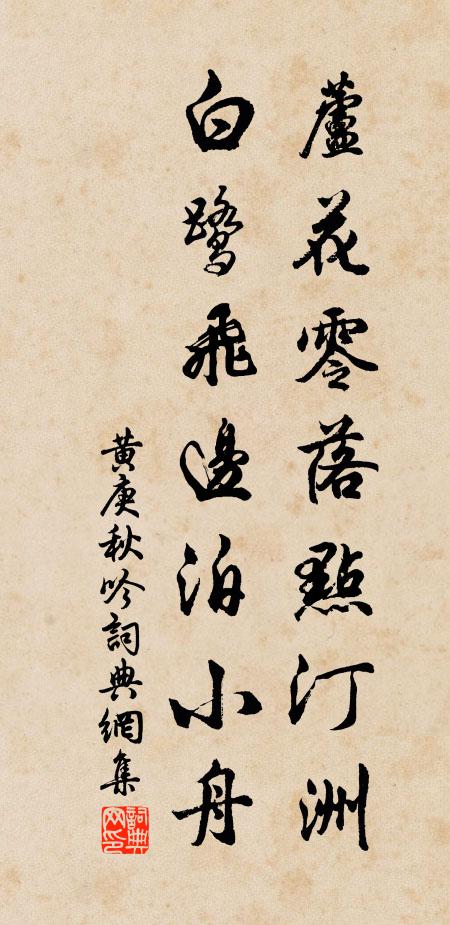 蘆花零落點汀洲
白鷺飛邊泊小舟
黃庚秋吟詞典網集
詞典网印